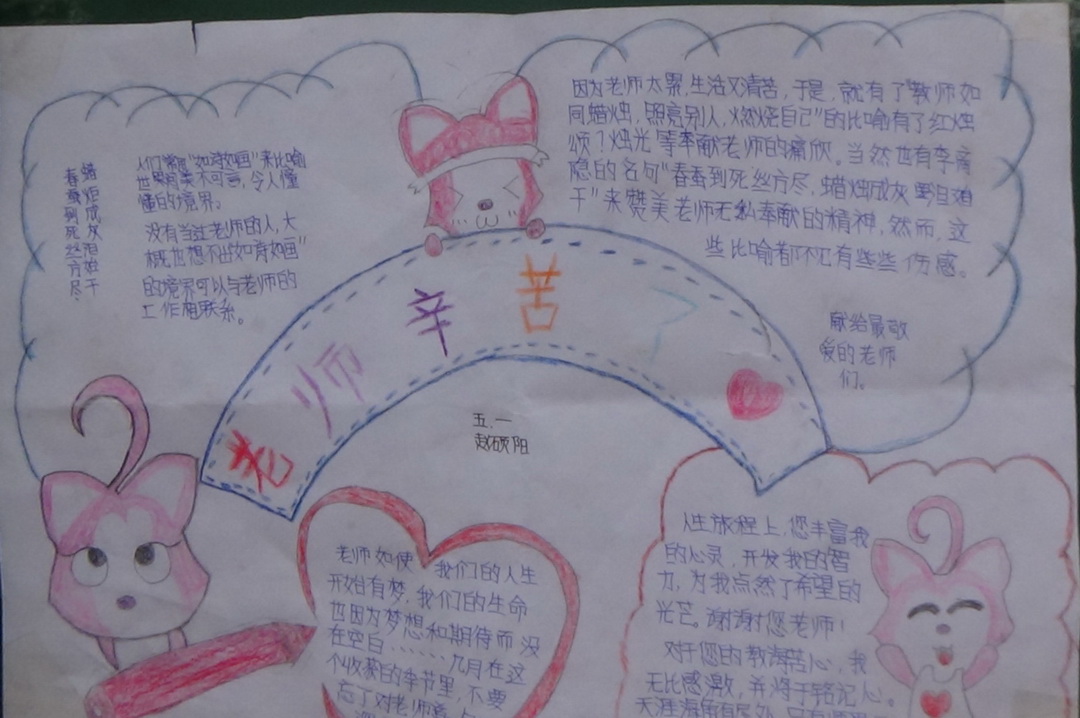 蜡炬成灰泪始干
春蚕到死丝方尽
人们常用"如诗如画"来比喻
世界有美不可言，令人懂
懂的境界。
没有当过老师的人，大
概也想不出"如诗如画"
的境界可以与老师的
工作相联系。
因为老师太累，生活又清苦，于是，就有了"教师如
同蜡烛，照亮别人，燃烧自己"的比喻有了红烛
颂？烛光等奉献老师的痛欣。当然也有李商
隐的名句"春蚕到死丝方尽，蜡烛成灰
干"来赞美老师无私奉献的精神，然而，这
些比喻都不免有些些伤感。
献给最敬
爱的老师
们。
老师辛苦了
五.一
赵硕阳
老师如使我们的人生
开始有梦，我们的生命
也因为梦想和期待而没
在空白……九月在这
个收获的季节里，不要
忘了对老师
人生旅程上，您丰富我
的心灵，开发我的智
力，为我点然了希望的
光芒。谢谢您老师！
对于您的教海苦心，我
无比感激，并将于铭记心。
天涯海角有尽处，只有师